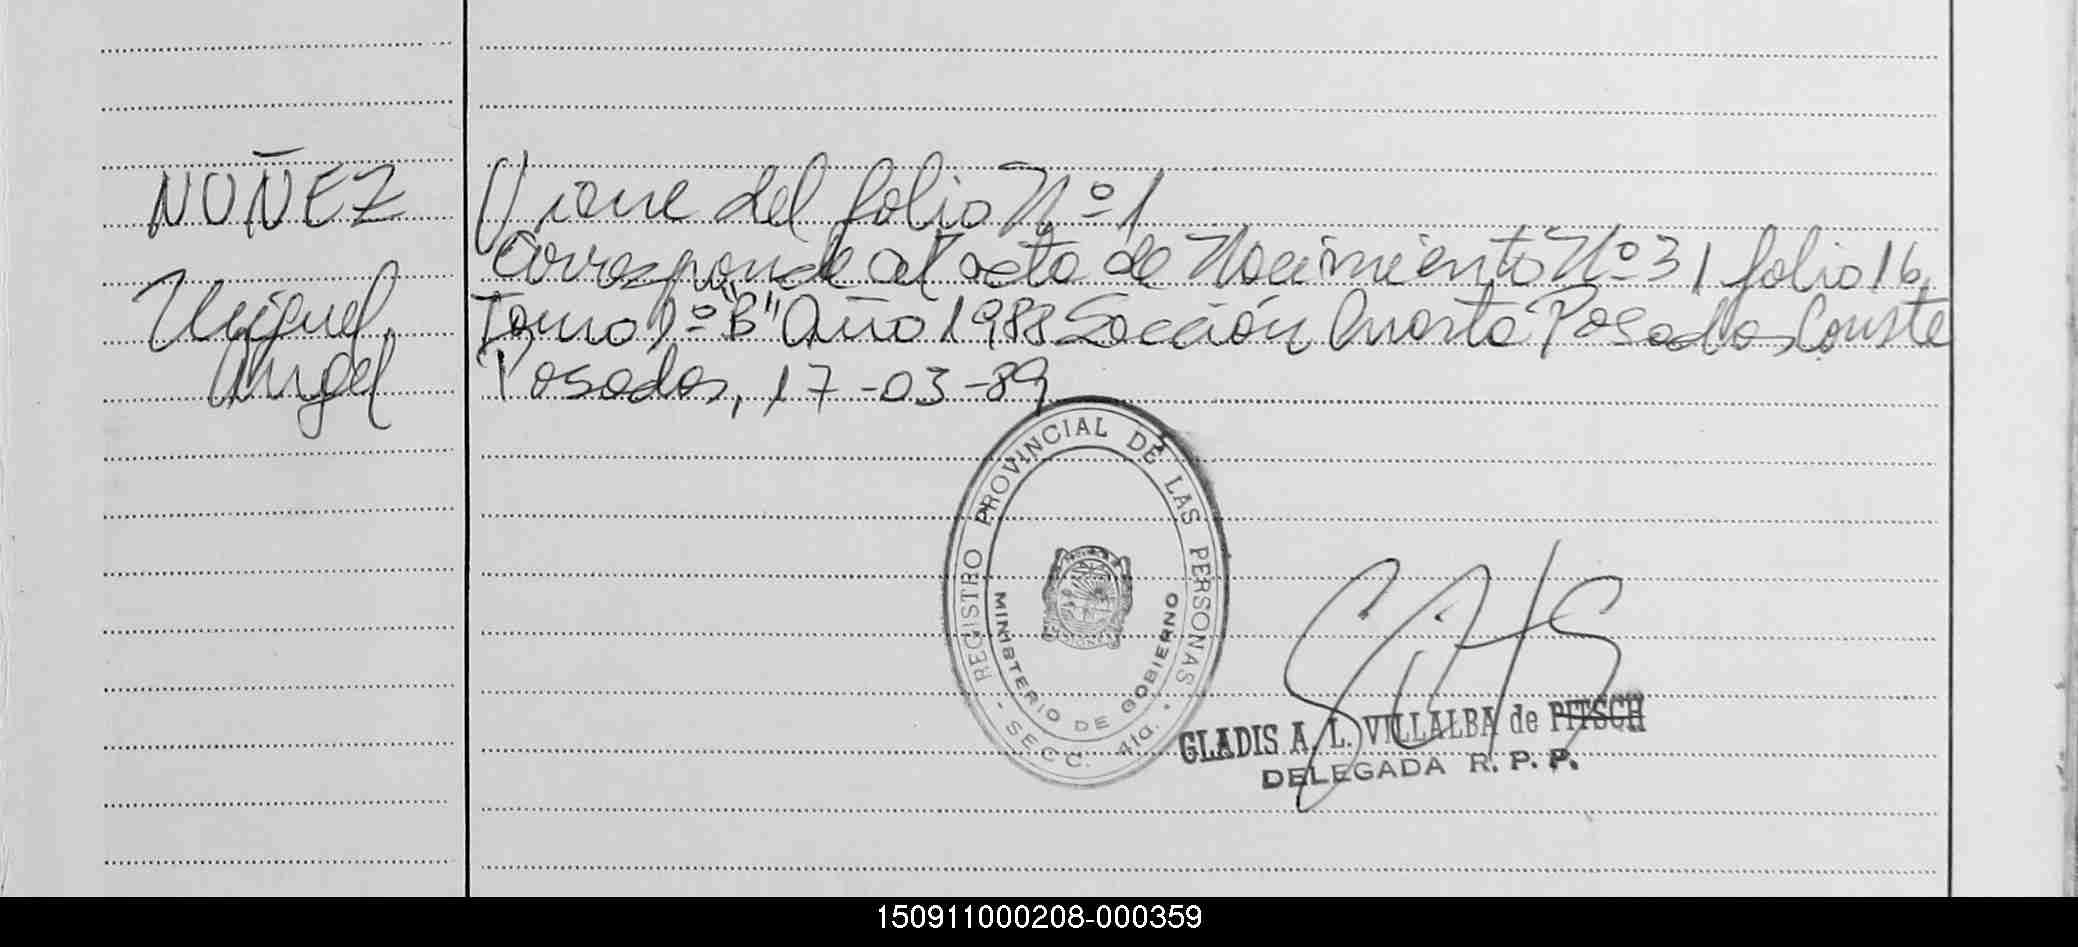 NUÑEZ
Miguel
Angel
Viene del folio Nº 1
Corresponde al acta de Nacimiento Nº 31 folio 16
Tomo 1º "B" Año 1988 Sección Cuarta Posadas Conste
Posadas, 17-03-89
REGISTRO PROVINCIAL DE LAS PERSONAS
MINISTERIO DE GOBIERNO
- SECC. 4ta. -
GLADIS A. L. VILLALBA de PITSCH
DELEGADA R. P. P.
150911000208-000359